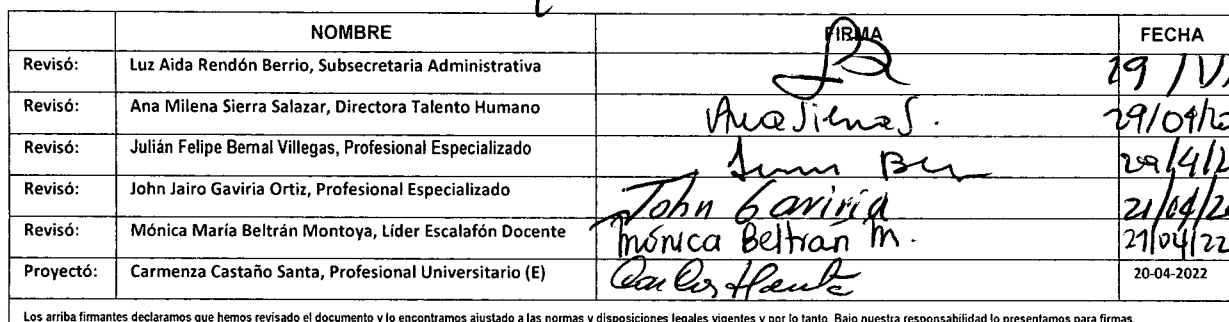 NOMBRE FIRMA FECHA
Revisó: Luz Aida Rendón Berrio, Subsecretaria Administrativa 29
Revisó: Ana Milena Sierra Salazar, Directora Talento Humano Ana Sierra S. 29/04/20
Revisó: Julián Felipe Bernal Villegas, Profesional Especializado 29/4/2
Revisó: John Jairo Gaviria Ortiz, Profesional Especializado John Gaviria 21/04/20
Revisó: Mónica María Beltrán Montoya, Líder Escalafón Docente Mónica Beltrán M. 21/04/22
Proyectó: Carmenza Castaño Santa, Profesional Universitario (E) 20-04-2022
Los arriba firmantes declaramos que hemos revisado el documento y lo encontramos ajustado a las normas y disposiciones legales vigentes y por lo tanto. Bajo nuestra responsabilidad lo presentamos para firmas.